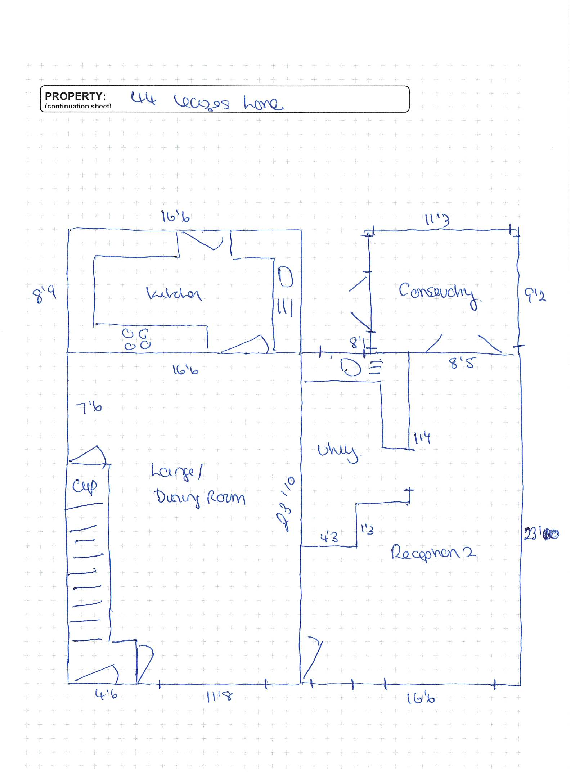 PROPERTY: 44
(continuation sheet)
16'6
11'3
8'9
Kitchen
9'2
8'1
16'6
8'5
7'6
11'4
Cup
Dining Room
23'10
4'3
1'3
Reception 2
4'6
11'8
16'6